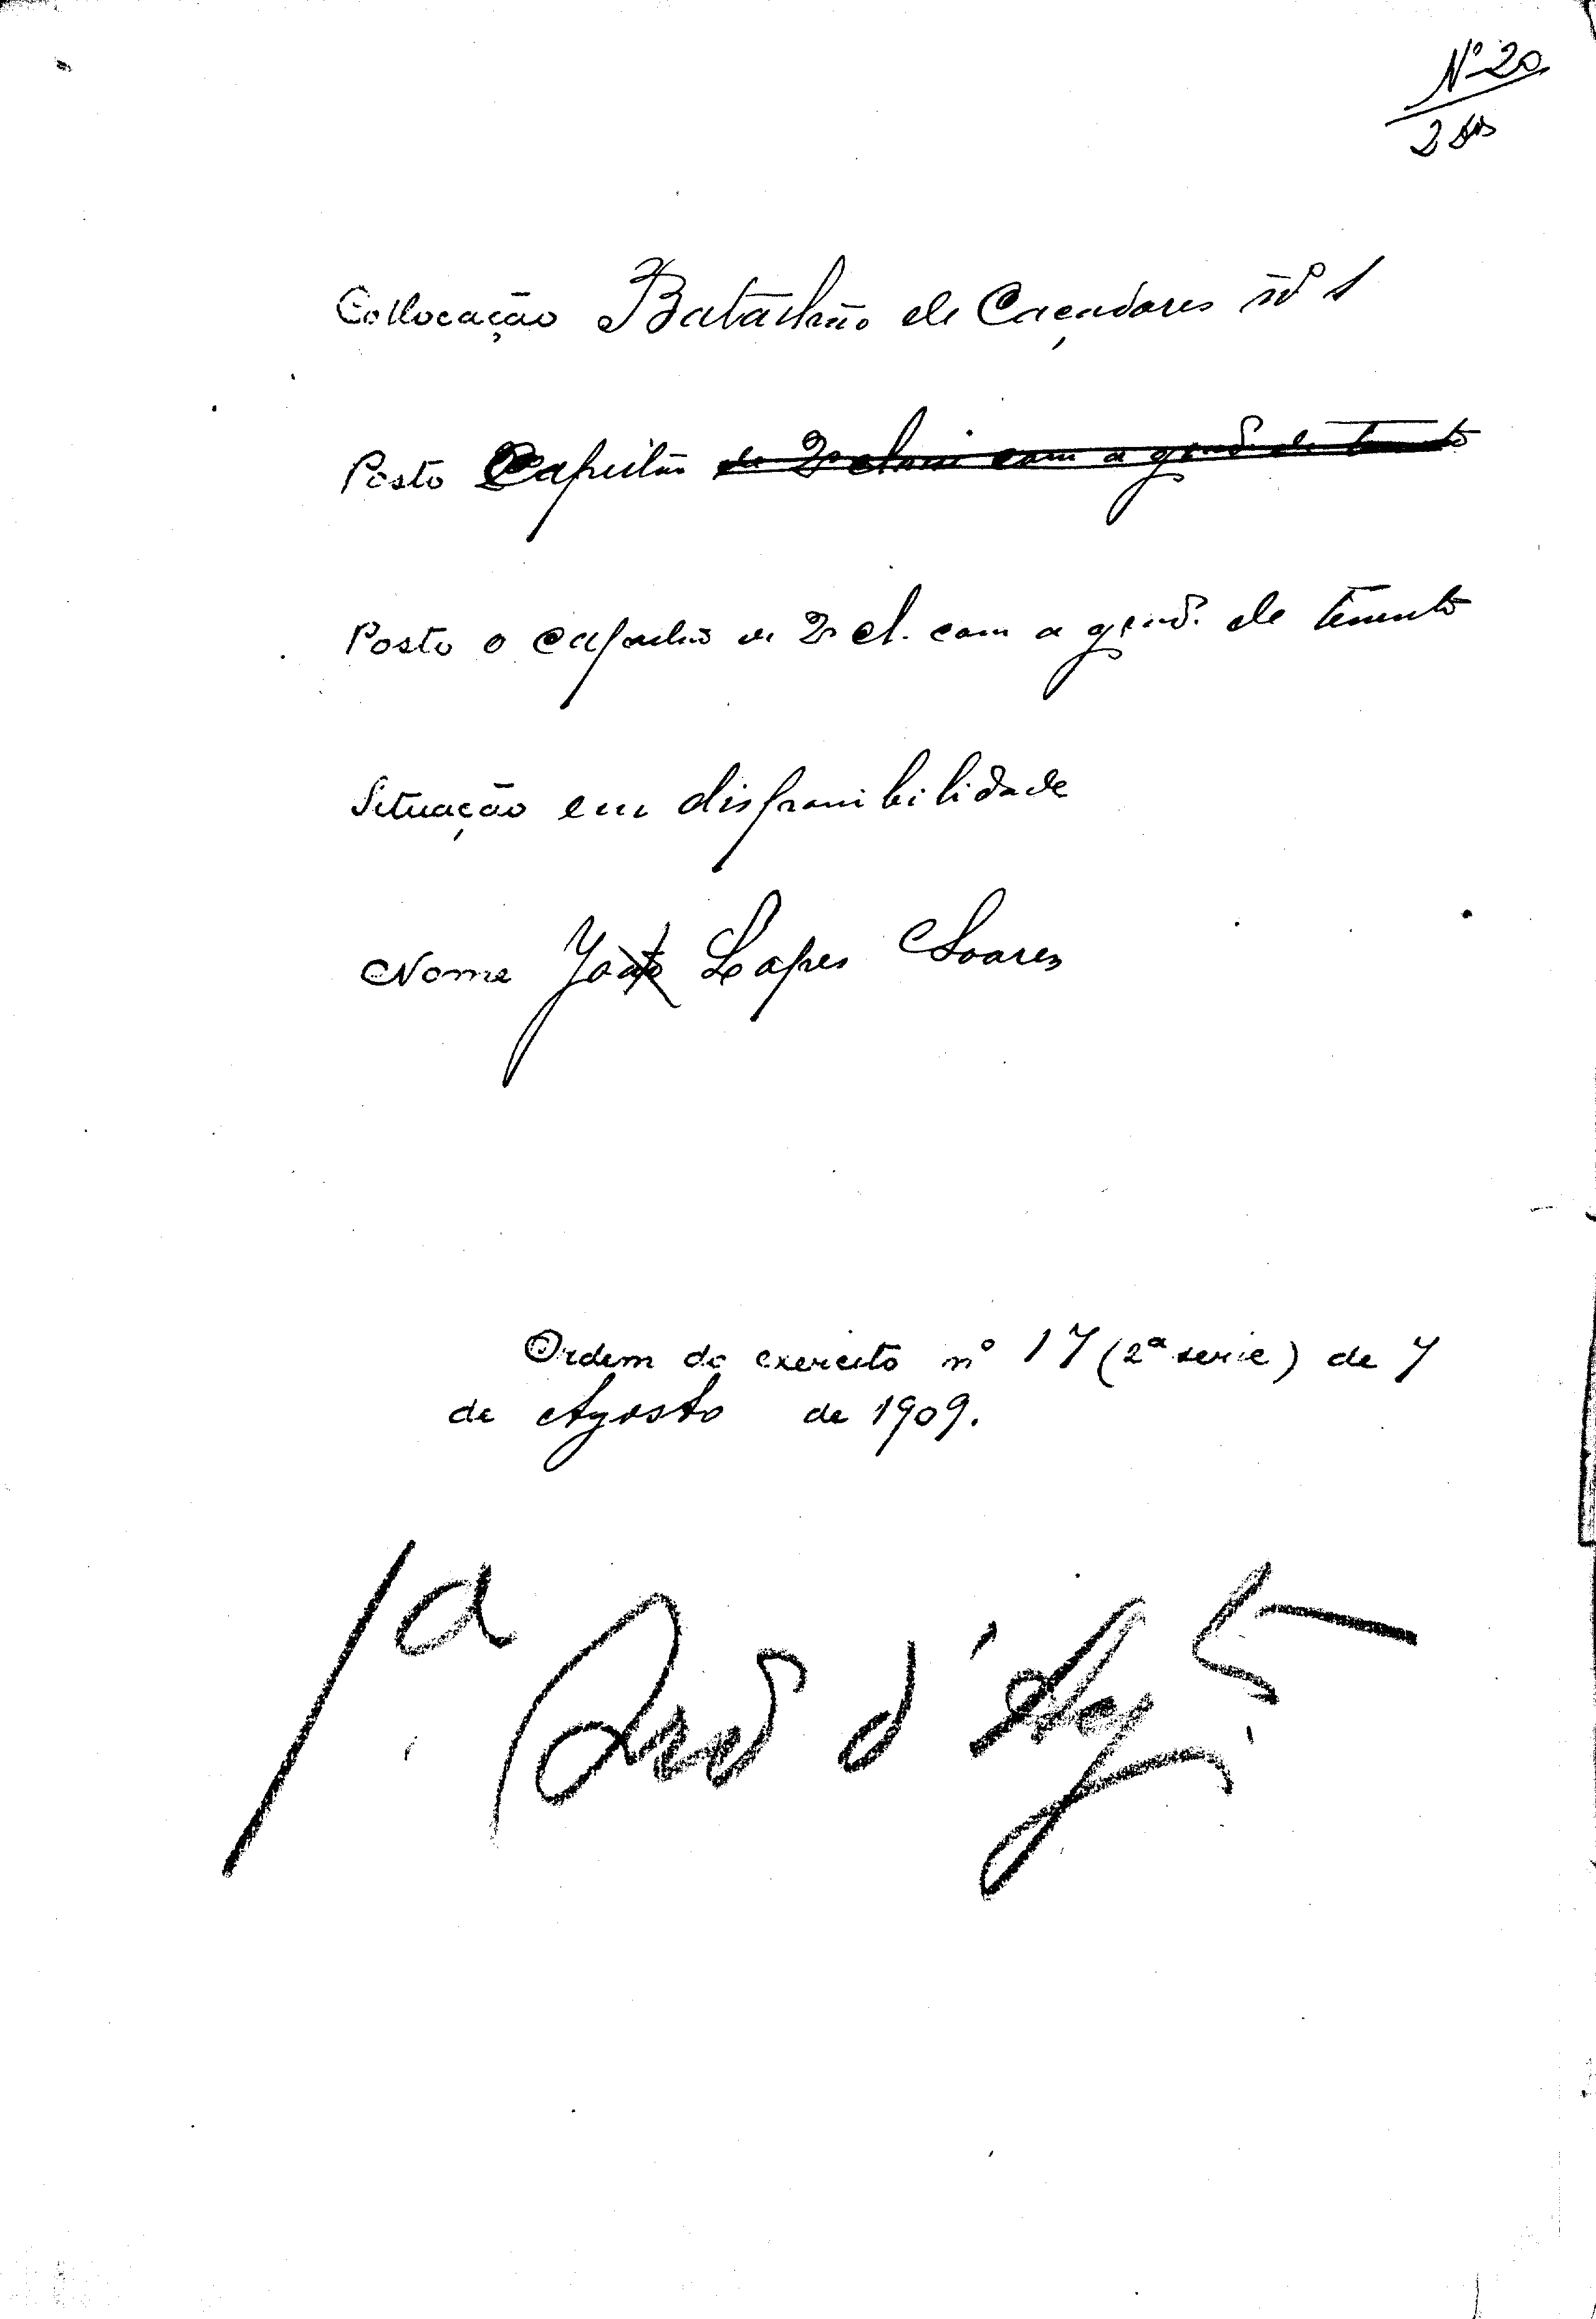 Nº 20
2
Collocação Batalhão de Caçadores nº 1
Posto Capitão de 2ª classe com a grad. de tenente
Posto o capitão de 2ª cl. com a grad. de tenente
Situação em disponibilidade
Nome João Lopes Soares
Ordem do exercito nº 17 (2ª serie) de 7
de Agosto de 1909.
1ª